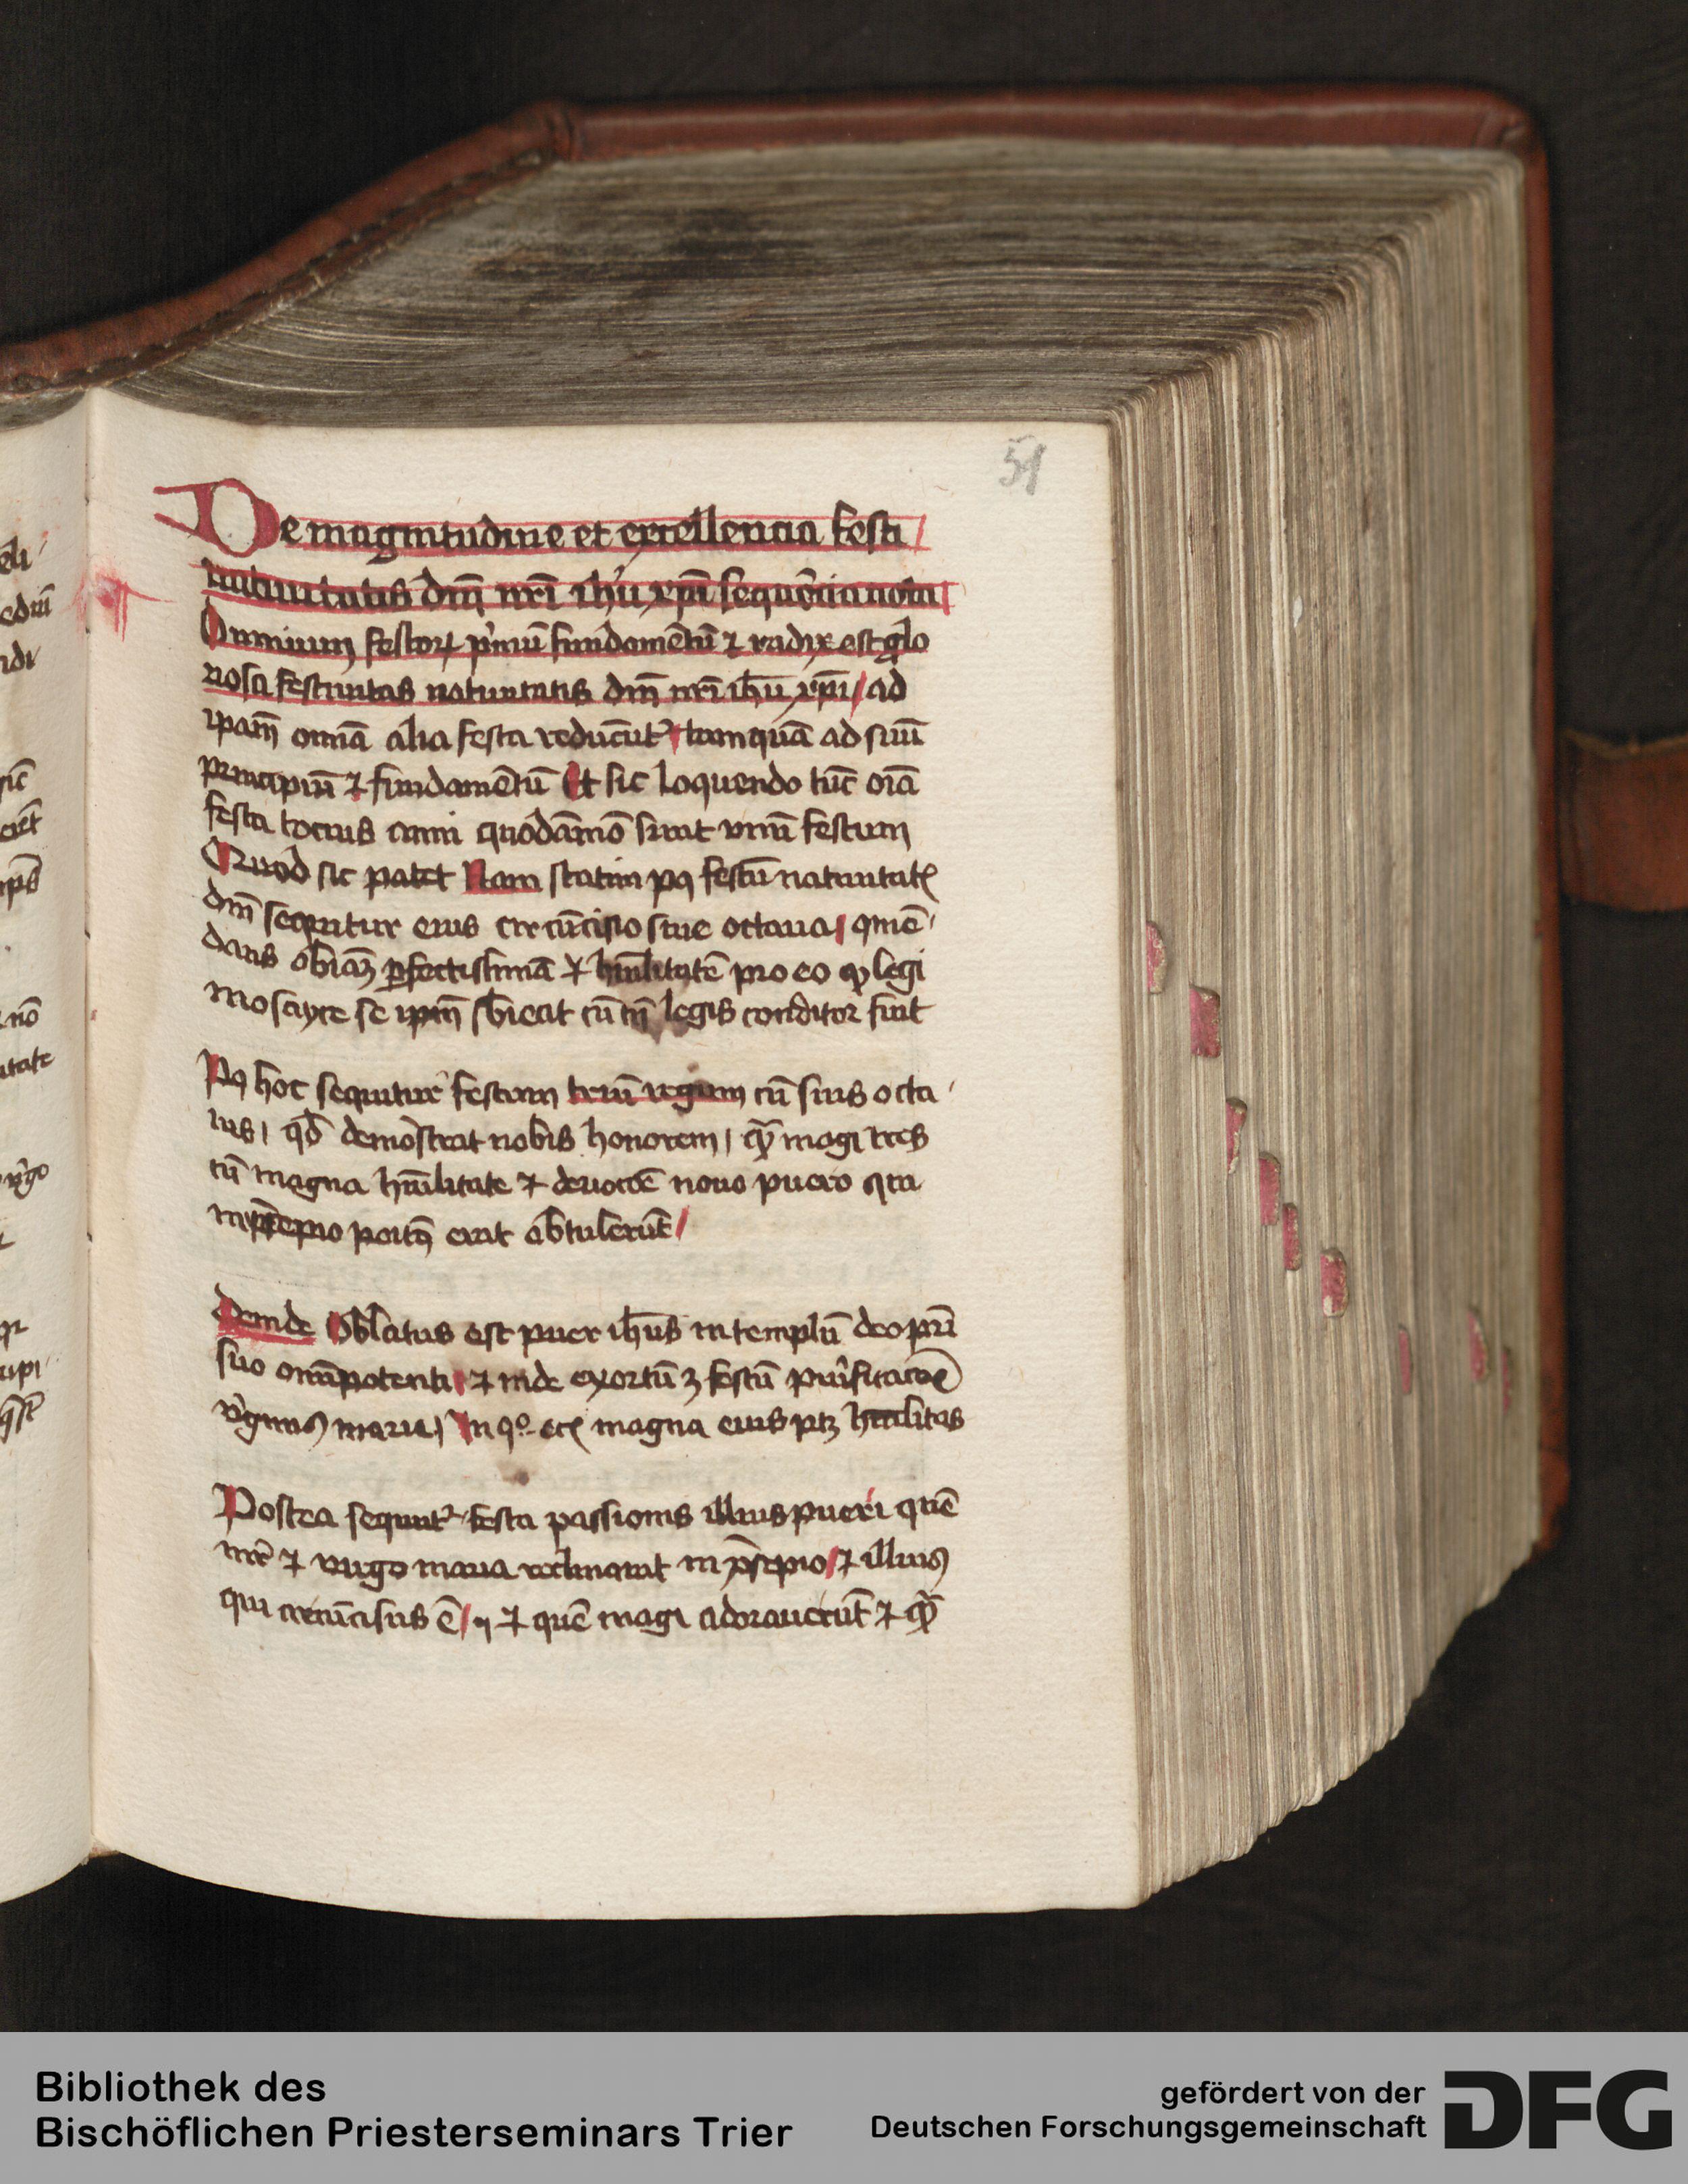 51
De magnitudine et excellencia festi
natiuitatis dnī nrī ihū xpī sequēcia nota
Omnium festoꝝ pͥmū fundamētū ⁊ radix est glo
riosa festiuitas natiuitatis dnī nrī ihū xpī / ad
ipam̄ omīa alia festa reducūt᷑ tamquā ad suū
principiū ⁊ fundamētū Et sic loquendo tūc oīa
festa tocius anni quodāmō sunt vnū festum
Quod sic patet Nam statim pꝰ festū natiuitatꝭ
dnī sequitur eius circūcisio siue octaua /
dans obīaꝫ ꝑfectissimā ⁊ hūilitatē pro eo ꝙ legi
moysayce se ipm̄ sb̄iecit cū tn̄ legis conditor fuit
Pꝰ hoc sequitur festum triū regum cū suis octa
uis / qd̄ demōstrat nobis honorem / magi tres
cū magna hūilitate ⁊ deuocōē nouo puero
in p̄sepio poitꝰ erat obtulerūt /
Deinde Oblatus est puer ihūs in templū deo pr̄i
suo omīpotenti ⁊ inde exortū ꝫ festū purificacōe
v̓ginis marie / In qͦ ecꝭ magna eius ptꝫ hūilitas
Postea sequūt᷑ festa passionis illius pueri quē
mr̄ ⁊ virgo maria reclinauit in p̄sepio / ⁊ illius
qui circūcisus ē / ⁊ quē magi adorauerūt ⁊
eli
sic
ciēt
nō
itate
v̓go
Bibliothek des
Bischöflichen Priesterseminars Trier
gefördert von der
Deutschen Forschungsgemeinschaft
DFG